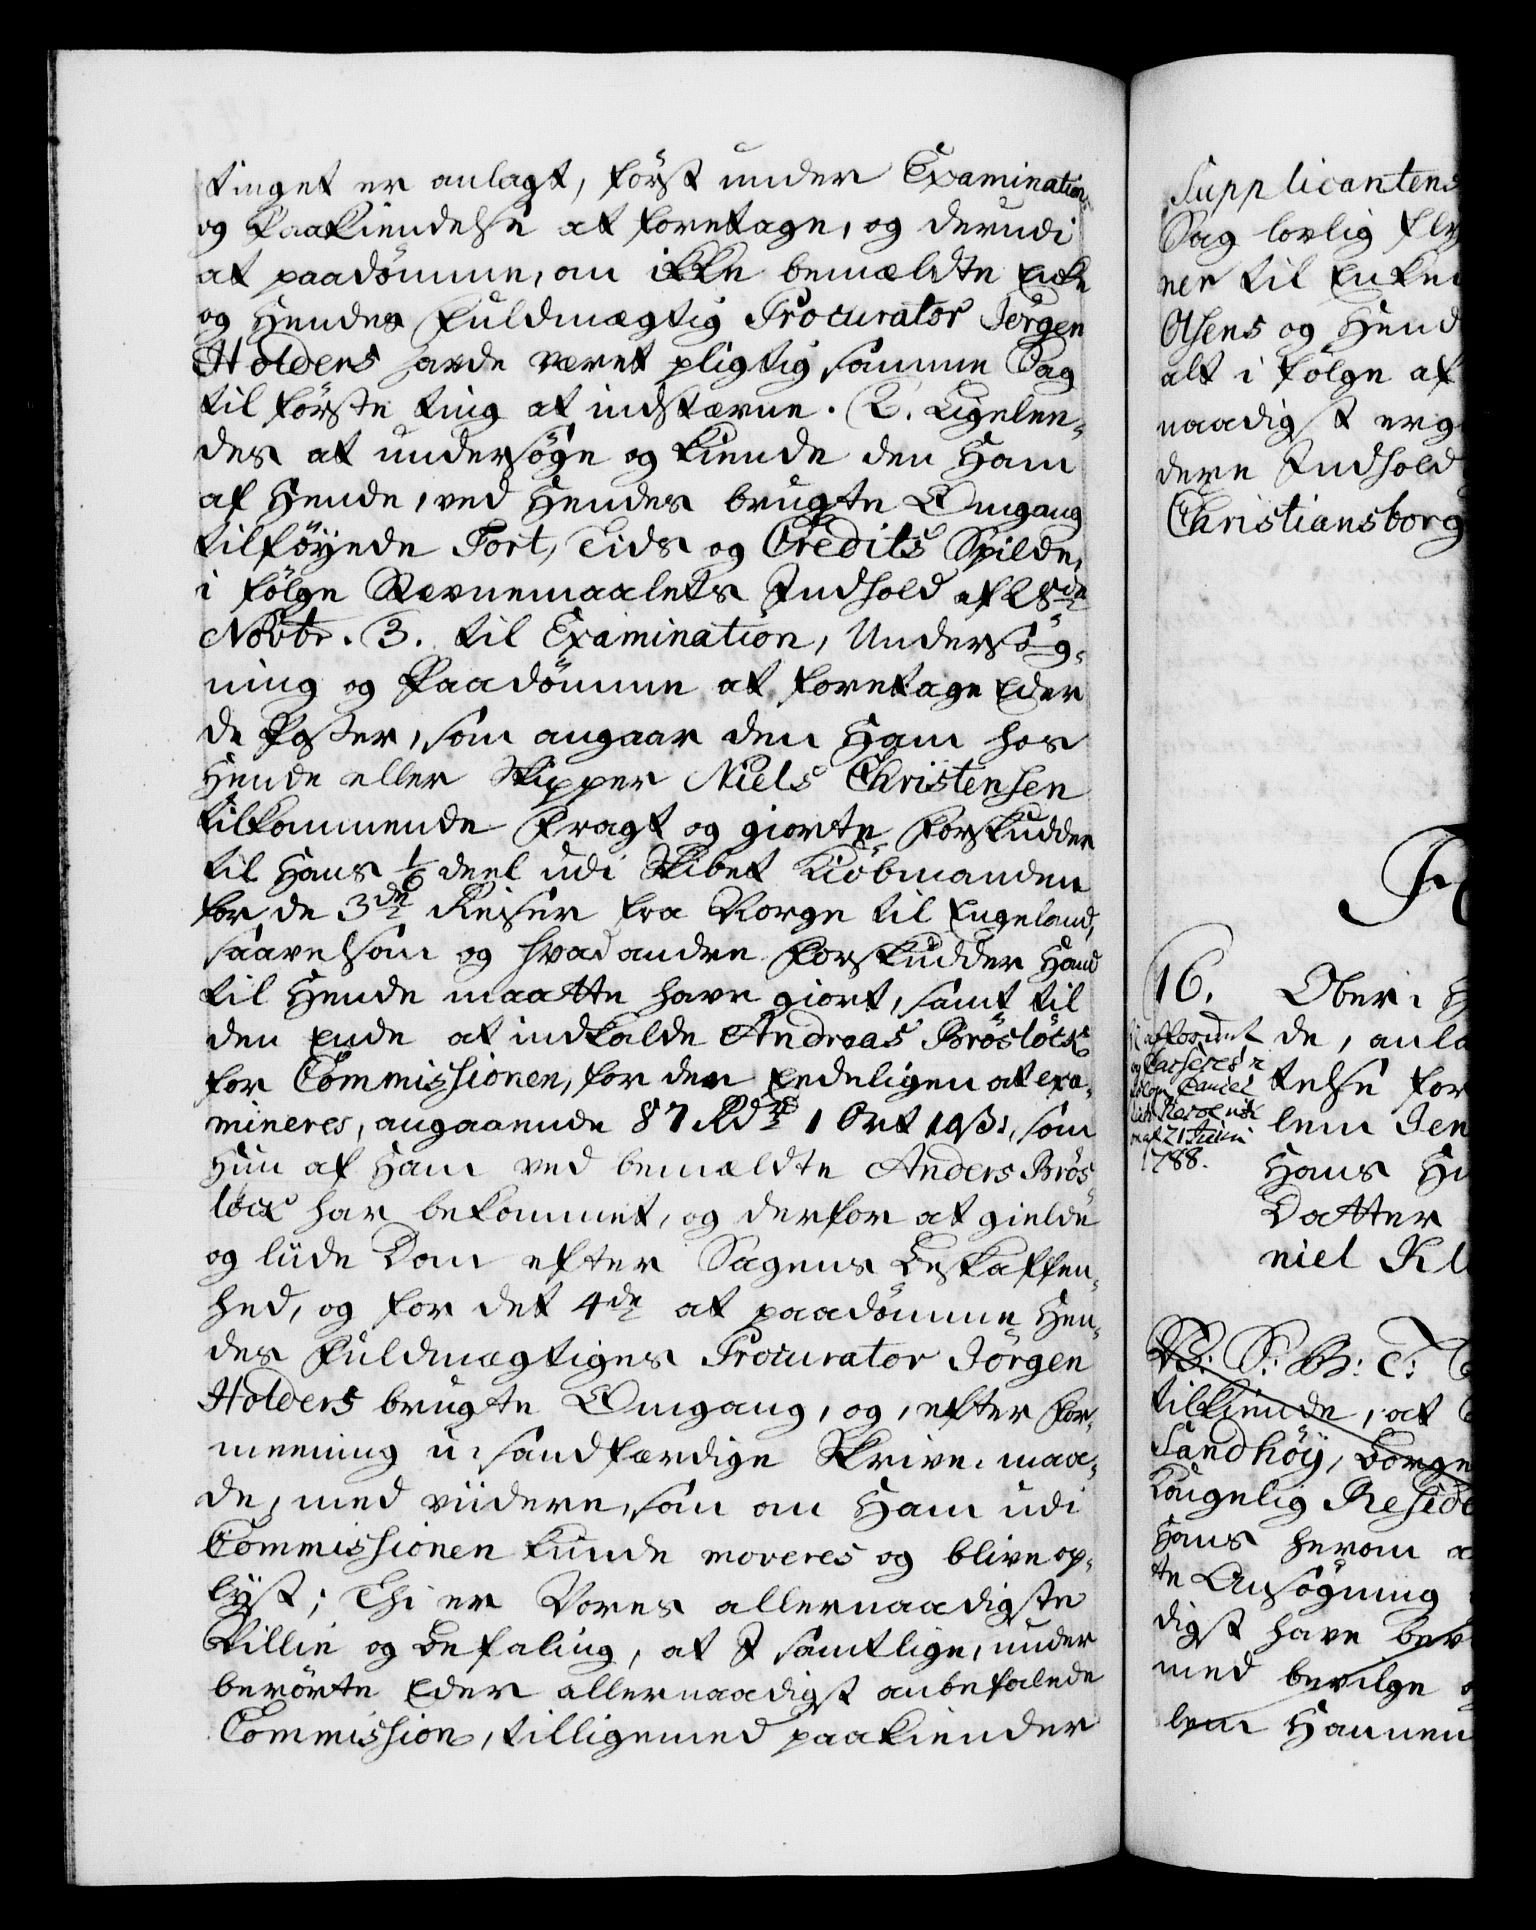 tinget er anlagt, först under Examination
og Paakiendelse at foretage, og derudi
at paadömme, om ikke bemældte Enke
og Hendes Fuldmægtig Procurator Jörgen
Holders havde været pligtig samme Sag
til förste Ting at indstævne. 2. Ligelen-
des at undersöge og kiende den Ham
af Hende, ved Hendes brugte Omgang
tilföyede Tort, Tids og Credits Spilde,
i fölge Stævnemaalets Indhold af 28de
Novbr. 3. til Examination, Undersög-
ning og Paadömme at foretage Eder
de Poster, som angaar den Ham hos
Hende eller Skipper Niels Christensen
tilkommende Fragt og giorte Forskudder
til Hans 1/6 deel udi Skibet Kiöbmanden
for de 3de Reiser fra Norge til Engeland,
saavelsom og hvad andre Forskudder Hand
til Hende maatte have giort, samt til
den Ende at indkalde Andreas Bröslöck
for Commissionen, for der Eedeligen at exa-
mineres, angaaende 87 Rdr 1 Ort 19 β, som
Hun af Ham ved bemældte Anders Brös-
löck har bekommet, og derfor at gielde
og liide Dom efter Sagens Beskaffen-
hed, og for det 4de at paadömme Hen-
des Fuldmægtiges Procurator Jörgen
Holders brugte Omgang, og, efter For-
meening u-sandfærdige Skrive-maa-
de, med viidere, som om Ham udi
Commissionen kunde moveres og blive op-
lyst; Thi er Vores allernaadigste
Villie og Befaling, at I samtlige, under
berörte Eder allernaadigst anbefalede
Commission, tilligemed paakiender
Supplicantens
Sag lovlig
ner til Enken
Olsens og Hend
alt i fölge af
naadigst erg
dere Indhold
Christiansborg
16.
Over-H
de, anla
telse for
lem Jen
Hans Hu
Datter
niel Kl
af 21 Juni
1788.
V: S: G: T:
tilkiende, at
Sandhöy, Borge
Kongelig Reside
Hans herom
te Ansögning
digst have bev
med bevilge
lem Hannem